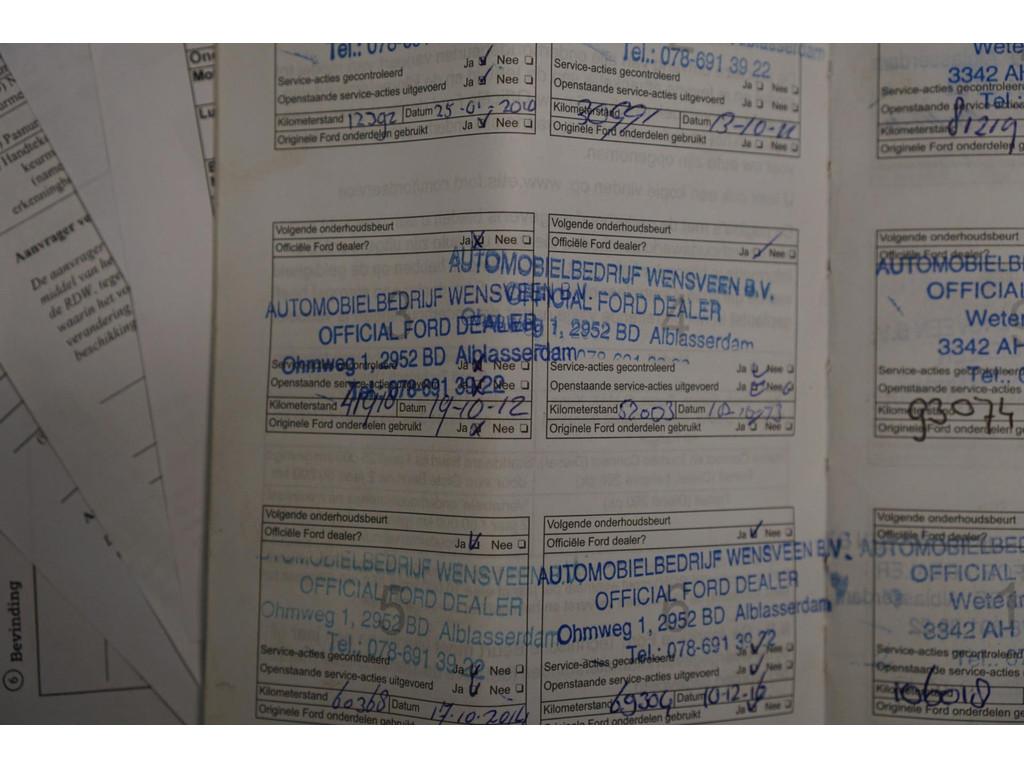 Tel.: 078-691 39 22
Ja Nee
Service-acties gecontroleerd
Ja Nee
Openstaande service-acties uitgevoerd
Kilometerstand 12392 Datum 25-01-2010
Originele Ford onderdelen gebruikt Ja Nee
Tel.: 078-691 39 22
Service-acties gecontroleerd
Ja Nee
Openstaande service-acties uitgevoerd Ja Nee
Kilometerstand 30691 Datum 13-10-11
Originele Ford onderdelen gebruikt Ja Nee
3342 AH
Service-acties gecontroleerd
Openstaande service
Tel.:
Kilometerstand 81219
Originele Ford onderdelen ge
Volgende onderhoudsbeurt
Officiële Ford dealer? Ja Nee
AUTOMOBIELBEDRIJF WENSVEEN B.V.
OFFICIAL FORD DEALER
Ohmweg 1, 2952 BD Alblasserdam
Tel.: 078-691 39 22
Service-acties gecontroleerd Ja Nee
Openstaande service-acties uitgevoerd Ja Nee
Kilometerstand 41918 Datum 19-10-12
Originele Ford onderdelen gebruikt Ja Nee
Volgende onderhoudsbeurt
Officiële Ford dealer? Ja Nee
AUTOMOBIELBEDRIJF WENSVEEN B.V.
OFFICIAL FORD DEALER
4
Ohmweg 1, 2952 BD Alblasserdam
Service-acties gecontroleerd Ja Nee
Openstaande service-acties uitgevoerd Ja Nee
Kilometerstand 52003 Datum
Originele Ford onderdelen gebruikt Ja Nee
Volgende onderhoudsbeurt
Officiële Ford dealer?
AUTOMOBIELB
OFFICIAL
Weter
3342 AH
Service-acties gecontroleerd
Openstaande service-acties
Kilometerstand 93074
Originele Ford onderdelen
Volgende onderhoudsbeurt
Officiële Ford dealer? Ja Nee
AUTOMOBIELBEDRIJF WENSVEEN
OFFICIAL FORD DEALER
5
Ohmweg 1, 2952 BD Alblasserdam
Tel.: 078-691 39 22
Service-acties gecontroleerd Ja Nee
Openstaande service-acties uitgevoerd Ja Nee
Kilometerstand 60368 Datum 17-10-2014
Originele Ford onderdelen gebruikt
Volgende onderhoudsbeurt
Officiële Ford dealer? Ja Nee
AUTOMOBIELBEDRIJF WENSVEEN B.V.
OFFICIAL FORD DEALER
6
Ohmweg 1, 2952 BD Alblasserdam
Tel.: 078-691 39 22
Service-acties gecontroleerd Ja Nee
Openstaande service-acties uitgevoerd Ja Nee
Kilometerstand 69304 Datum 10-12-16
Originele Ford onderdelen gebruikt Ja Nee
Volgende onderhoudsbeurt
Officiële Ford dealer?
AUTOMOBIELBED
OFFICIAL
3342 AH
Service-acties gecontroleerd
Openstaande service-acties
Kilometerstand 106018
Originele Ford onderdelen
Aanvrager
De aanvrager
middel van he
de RDW, tege
waarin het vo
verandering
beschikking
6 Bevinding